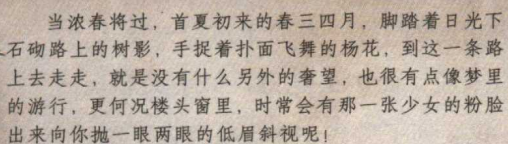 当浓春将过，首夏初来的春三四月，脚踏着日光下
石砌路上的树影，手捉着扑面飞舞的杨花，到这一条路
上去走走，就是没有什么另外的奢望，也很有点像梦里
的游行，更何况楼头窗里，时常会有那一张少女的粉脸
出来向你抛一眼两眼的低眉斜视呢！